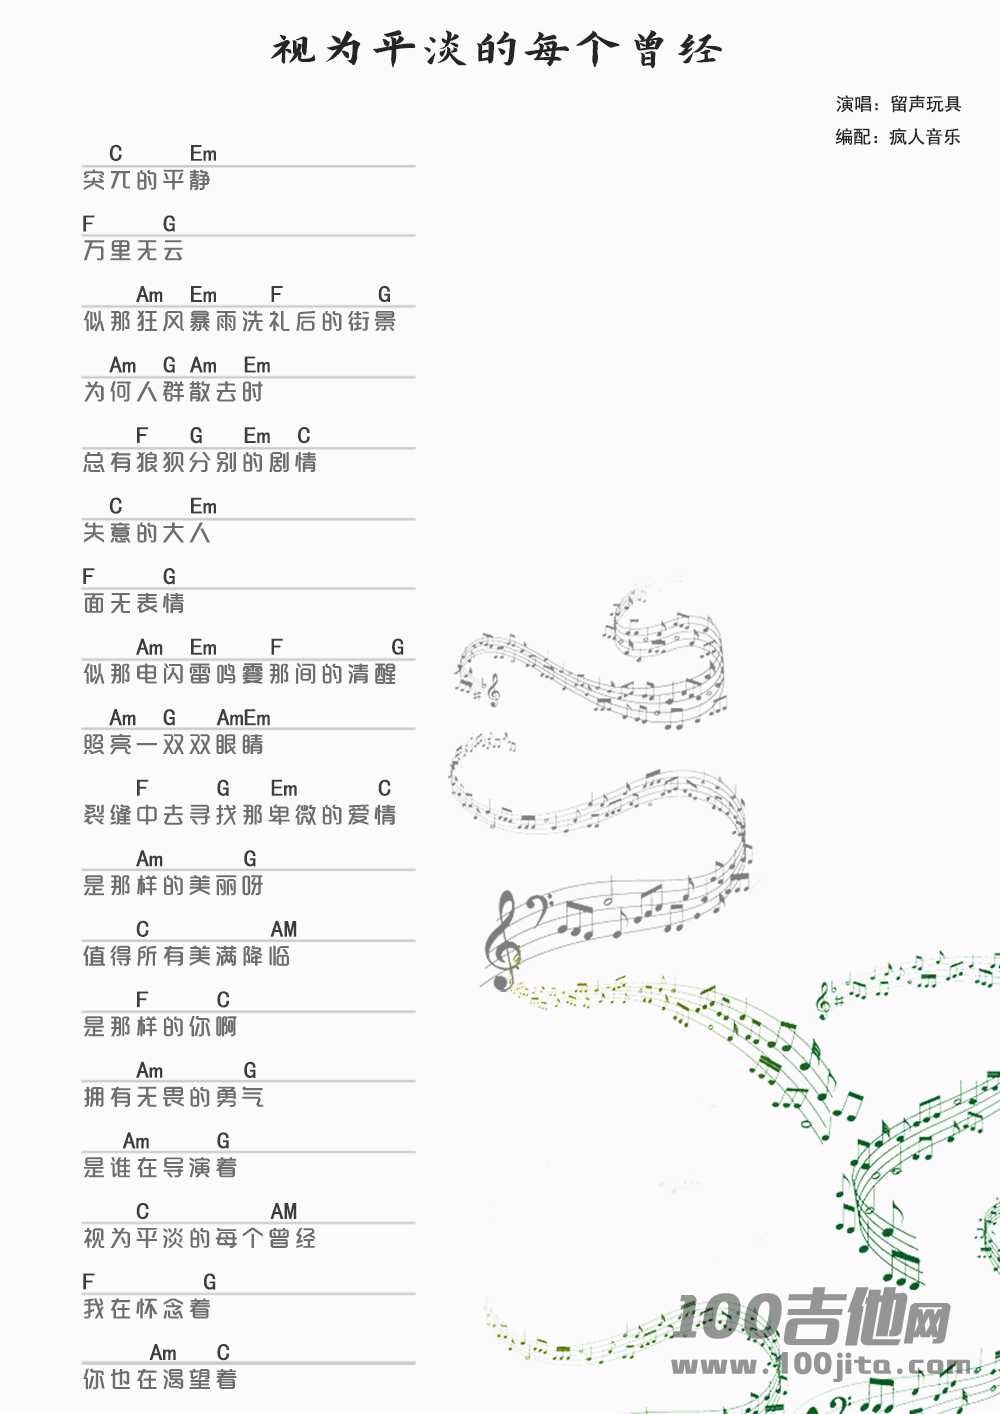 视为平淡的每个曾经
演唱：留声玩具
编配：疯人音乐
C Em
突兀的平静
F G
万里无云
Am Em F G
似那狂风暴雨洗礼后的街景
Am G Am Em
为何人群散去时
F G Em C
总有狼狈分别的剧情
C Em
失意的大人
F G
面无表情
Am Em F G
似那电闪雷鸣霎那间的清醒
Am G AmEm
照亮一双双眼睛
F G Em C
裂缝中去寻找那卑微的爱情
Am G
是那样的美丽呀
C AM
值得所有美满降临
F C
是那样的你啊
Am G
拥有无畏的勇气
Am G
是谁在导演着
C AM
视为平淡的每个曾经
F G
我在怀念着
Am C
你也在渴望着
100吉他网
www.100jita.com